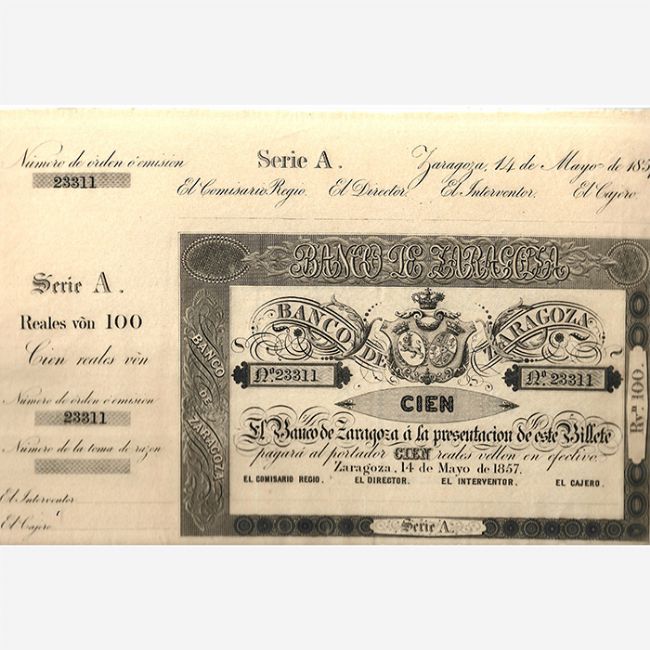 Número de orden ó emision
23311
Serie A.
Zaragoza, 14 de Mayo de 185
El Comisario Regio. El Director. El Interventor. El Cajero.
Serie A.
Reales vòn 100
Cien reales vòn
Número de orden ó emision
23311
Número de la toma de razon
El Interventor
El Cajero
BANCO DE ZARAGOZA
BANCO DE ZARAGOZA
BANCO DE ZARAGOZA
Nº 23311
Nº 23311
CIEN
El Banco de Zaragoza á la presentacion de este Billete
pagará al portador CIEN reales vellon en efectivo.
Zaragoza, 14 de Mayo de 1857.
EL COMISARIO REGIO. EL DIRECTOR. EL INTERVENTOR. EL CAJERO.
Rvn. 100.
Serie A.